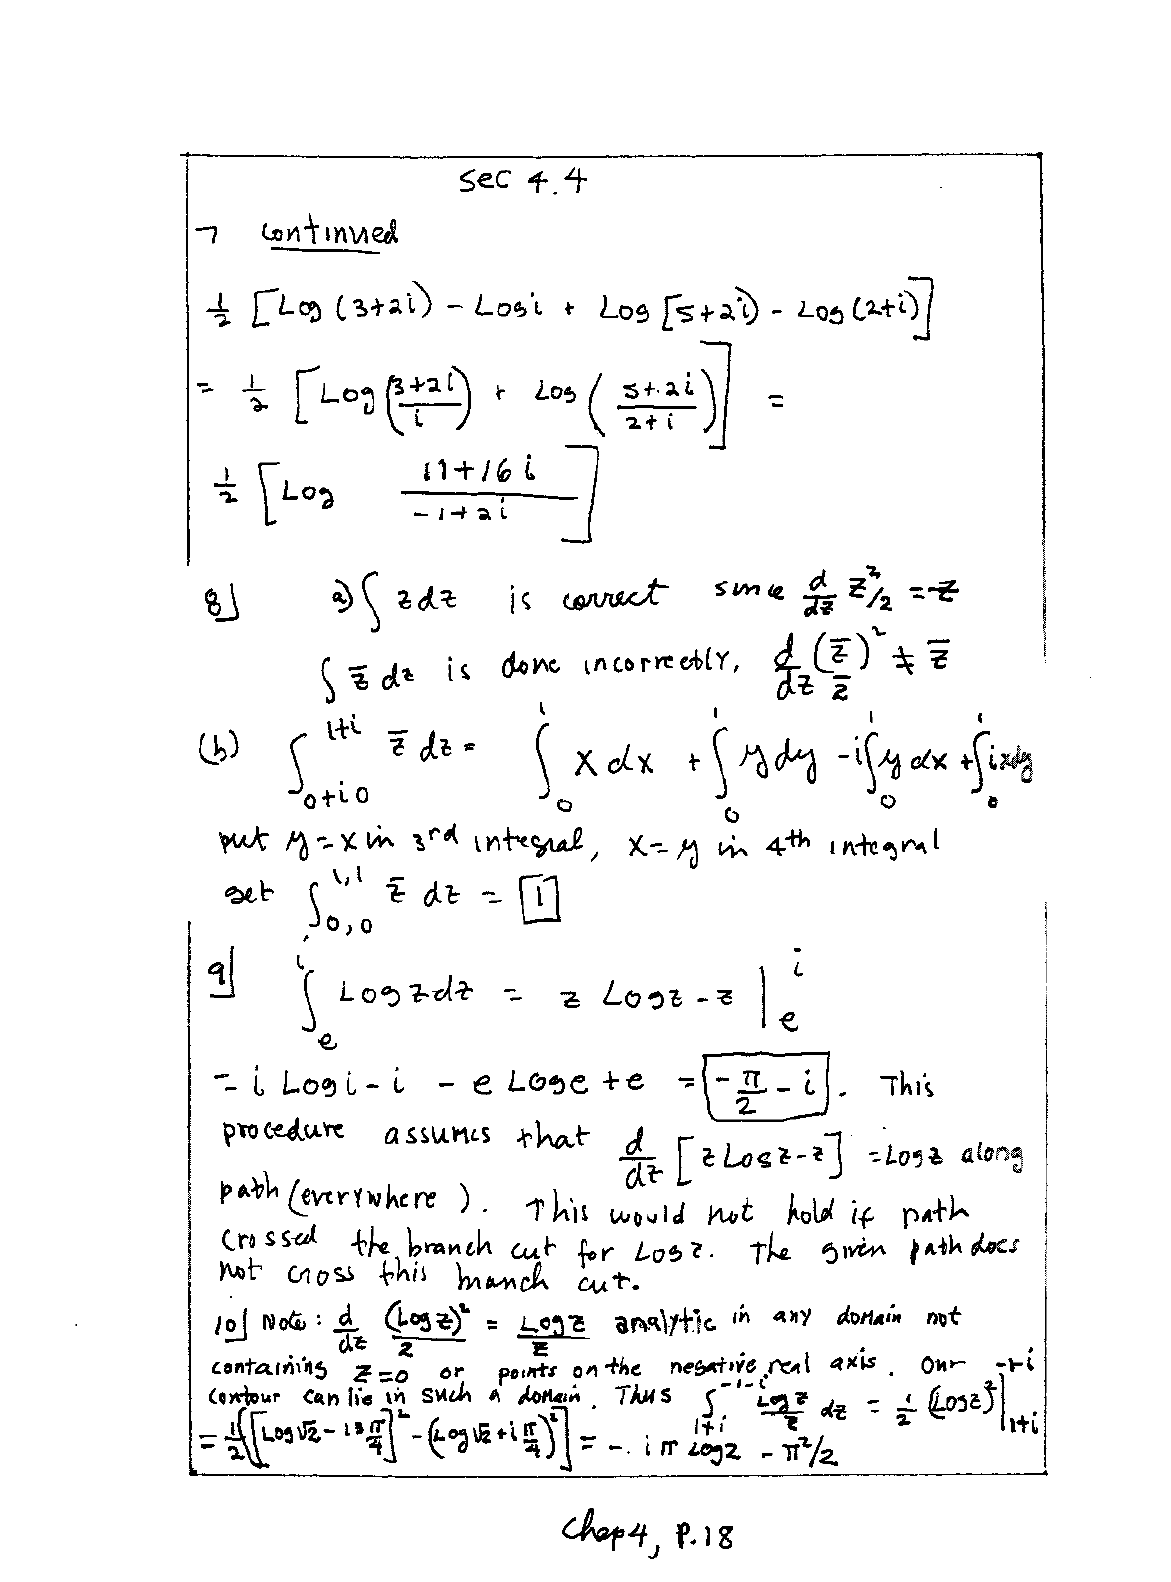 Sec 4.4
7 continued
1/2 [Log (3+2i) - Log i + Log [5+2i) - Log (2+i)]
= 1/2 [Log (3+2i)/i) + Log (5+2i / 2+i)] =
1/2 [Log 11+16i / -1+2i]
8] a) ∫ z dz is correct since d/dz z²/2 = z
∫ z̄ dz is done incorrectly, d/dz (z̄)²/2 ≠ z̄
(b) ∫_{0+i0}^{1+i} z̄ dz = ∫_0^1 x dx + ∫_0^1 y dy - i∫_0^1 y dx + ∫_0^1 ixdy
put y=x in 3rd integral, x=y in 4th integral
get ∫_{0,0}^{1,1} z̄ dz = 1
9] ∫_e^i Log z dz = z Log z - z |_e^i
= i Log i - i - e Log e + e = -π/2 - i . This
procedure assumes that d/dz [z Log z - z] = Log z along
path (everywhere). This would not hold if path
crossed the branch cut for Log z. The given path does
not cross this branch cut.
10] Note: d/dz (Log z)²/2 = Log z / z analytic in any domain not
containing z=0 or points on the negative real axis. Our
contour can lie in such a domain. Thus ∫_{1+i}^{-1-i} Log z / z dz = 1/2 (Log z)² |_{1+i}
= 1/2 [[Log √2 - i3π/4]² - (Log √2 + iπ/4)²] = - iπ Log 2 - π²/2
Chap 4, P.18